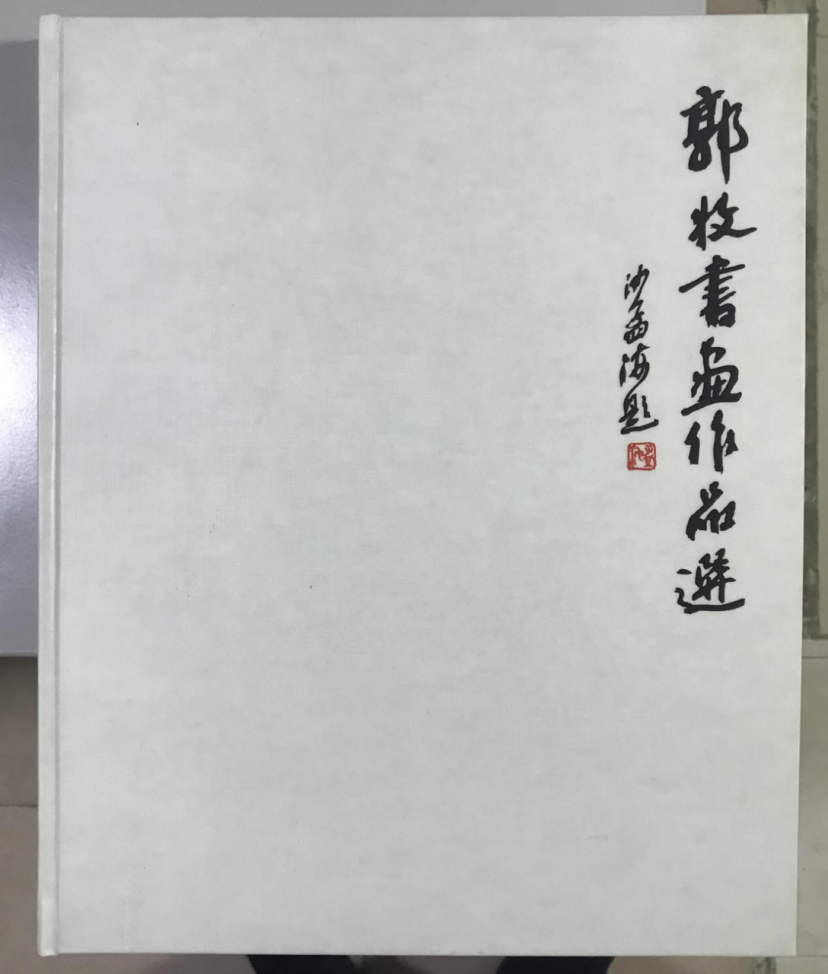 郭牧書畫作品選
沙孟海題